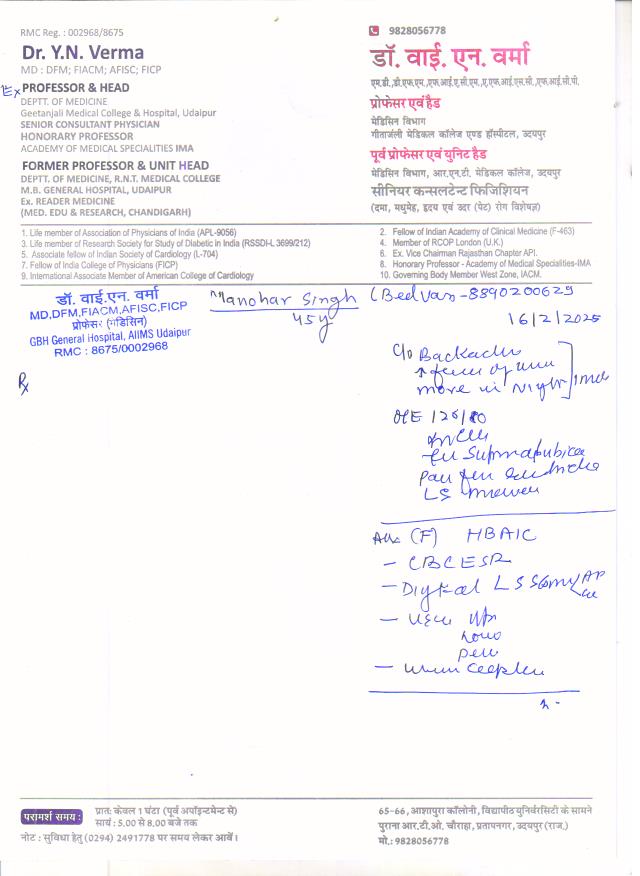 RMC Reg. : 002968/8675
Dr. Y.N. Verma
MD : DFM; FIACM; AFISC; FICP
Ex
PROFESSOR & HEAD
DEPTT. OF MEDICINE
Geetanjali Medical College & Hospital, Udaipur
SENIOR CONSULTANT PHYSICIAN
HONORARY PROFESSOR
ACADEMY OF MEDICAL SPECIALITIES IMA
FORMER PROFESSOR & UNIT HEAD
DEPTT. OF MEDICINE, R.N.T. MEDICAL COLLEGE
M.B. GENERAL HOSPITAL, UDAIPUR
Ex. READER MEDICINE
(MED. EDU & RESEARCH, CHANDIGARH)
9828056778
डॉ. वाई. एन. वर्मा
एम.डी.,डी.एफ.एम.,एफ.आई.ए.सी.एम.,ए.एफ.आई.एस.सी.,एफ.आई.सी.पी.
प्रोफेसर एवं हैड
मेडिसिन विभाग
गीताजंली मेडिकल कॉलेज एण्ड हॉस्पीटल, उदयपुर
पूर्व प्रोफेसर एवं युनिट हैड
मेडिसिन विभाग, आर.एन.टी. मेडिकल कॉलेज, उदयपुर
सीनियर कन्सलटेन्ट फिजिशियन
(दमा, मधुमेह, हृदय एवं उदर (पेट) रोग विशेषज्ञ)
1. Life member of Association of Physicians of India (APL-9056)
3. Life member of Research Society for Study of Diabetic in India (RSSDI-L 3699/212)
5. Associate fellow of Indian Society of Cardiology (L-704)
7. Fellow of India College of Physicians (FICP)
9. International Associate Member of American College of Cardiology
2. Fellow of Indian Academy of Clinical Medicine (F-463)
4. Member of RCOP London (U.K.)
6. Ex. Vice Chairman Rajasthan Chapter API.
8. Honorary Professor - Academy of Medical Specialities-IMA
10. Governing Body Member West Zone, IACM.
डॉ. वाई.एन. वर्मा
MD,DFM,FIACM,AFISC,FICP
प्रोफेसर (मेडिसिन)
GBH General Hospital, AIIMS Udaipur
RMC : 8675/0002968
Manohar Singh (Bedvas-8890200629
45y
16/2/2025
Rx
C/o Backache
more in Night
O/E 126/80
Suprapubic
LS
Adv (F) HBA1C
- CBC ESR
- Digital L S Spine AP
-
-
परामर्श समय :
प्रातः केवल 1 घंटा (पूर्व अपॉइन्टमेन्ट से)
सायं : 5.00 से 8.00 बजे तक
नोट : सुविधा हेतु (0294) 2491778 पर समय लेकर आवें।
65-66, आशापुरा कॉलोनी, विद्यापीठ युनिर्वरसिटी के सामने
पुराना आर.टी.ओ. चौराहा, प्रतापनगर, उदयपुर (राज.)
मो.: 9828056778